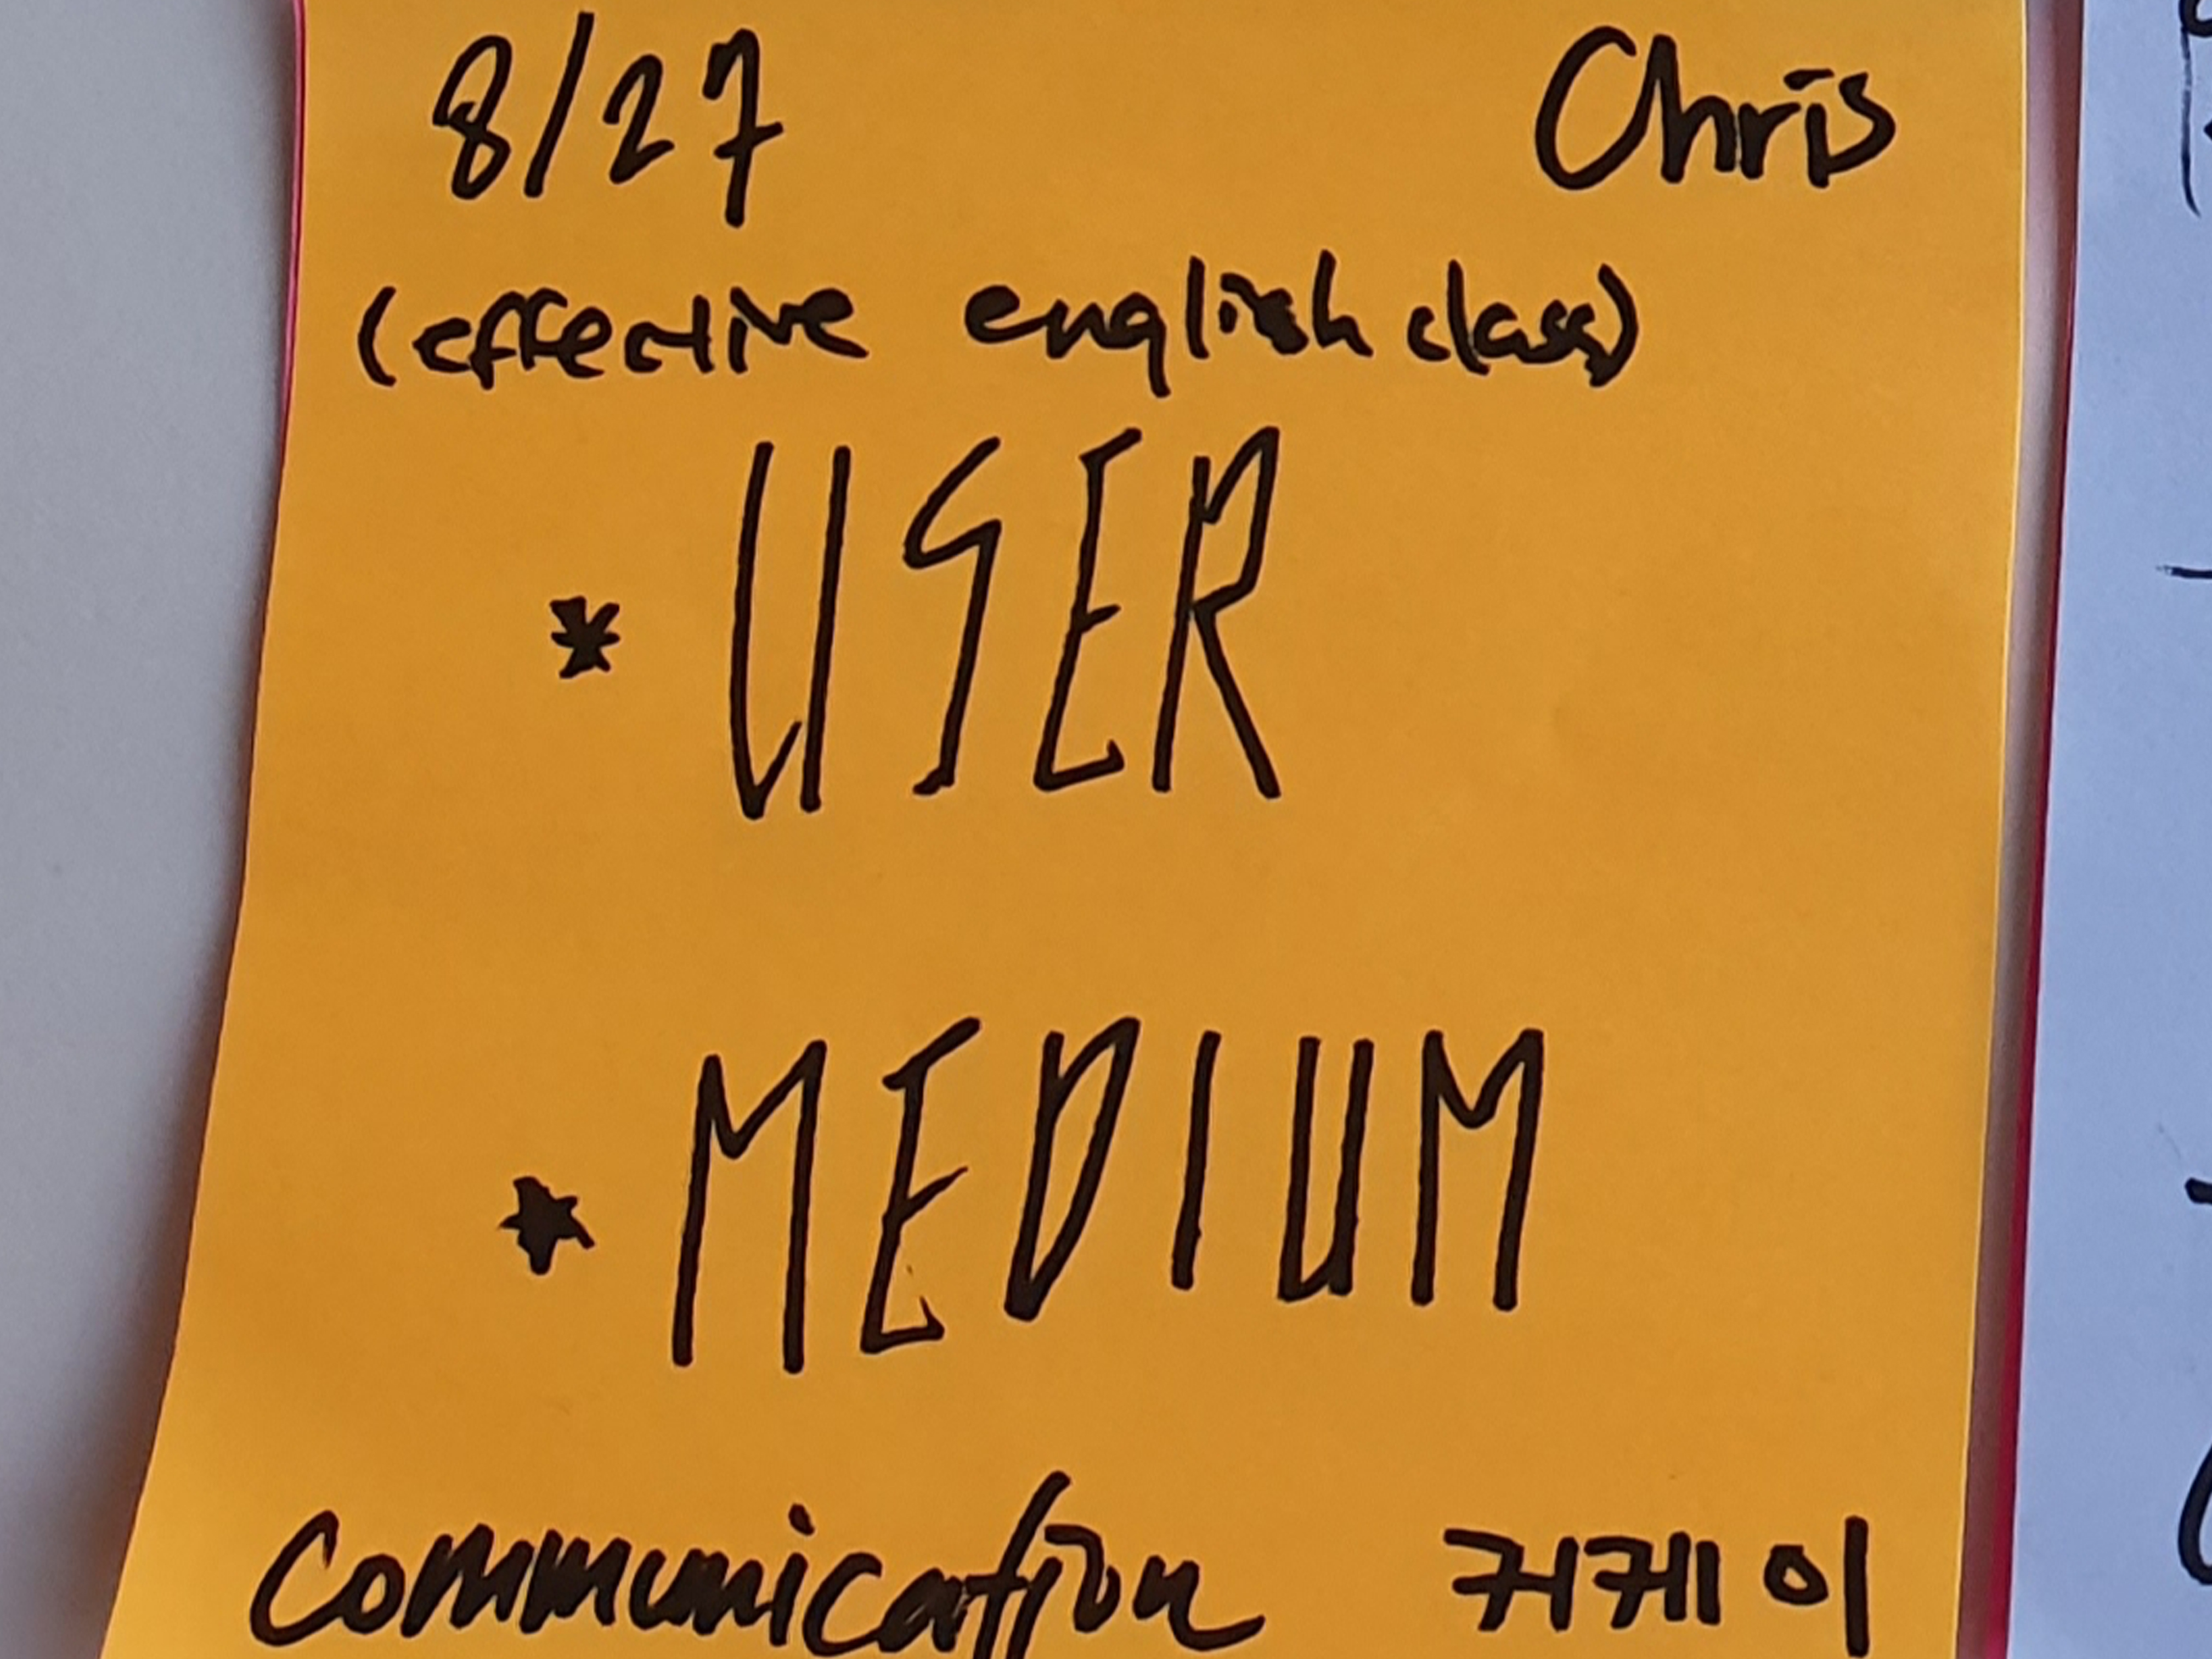 8/27 Chris
(effective english class)
* USER
* MEDIUM
Communication 커케이